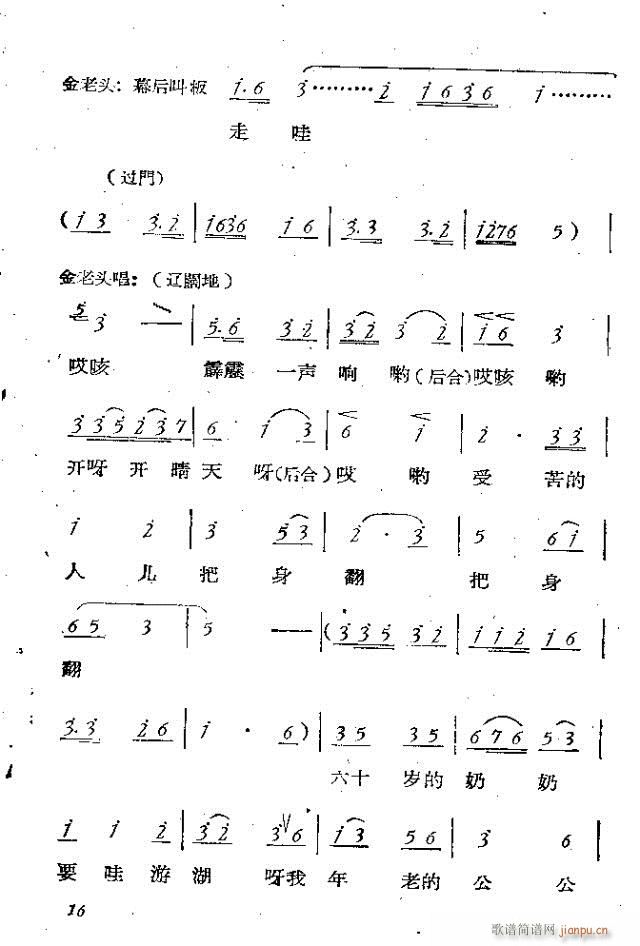 金老头：幕后叫板 1·6 3………2 1636 1………
走 哇
（过門）
(13 3·2 | 1636 16 | 3·3 3·2 | 1276 5) |
金老头唱：（辽闊地）
5 3 — | 5·6 32 | 332 32 | 16 3 |
哎咳 霹靂 一声 响 喲（后合）哎咳 喲
335237 | 6 13 | 6 1 | 2· 33 |
开呀 开 晴 天 呀（后合）哎 喲 受 苦的
1 2 | 3 53 | 2·3 | 5 61 |
人 儿 把 身 翻 把 身
65 3 | 5 — | (335 32 | 112 16 |
翻
3·3 26 | 1· 6) | 35 35 | 676 53 |
六十 岁的 奶 奶
1 1 2 | 32 36 | 13 56 | 3 6 |
要 哇 游 湖 呀我 年 老的 公 公
16
歌谱简谱网
jianpu.cn